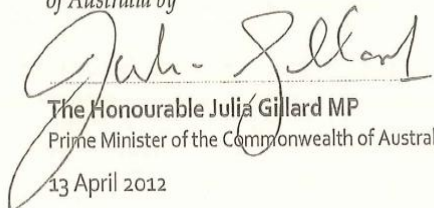 of Australia by
Julia Gillard
The Honourable Julia Gillard MP
Prime Minister of the Commonwealth of Austral
13 April 2012